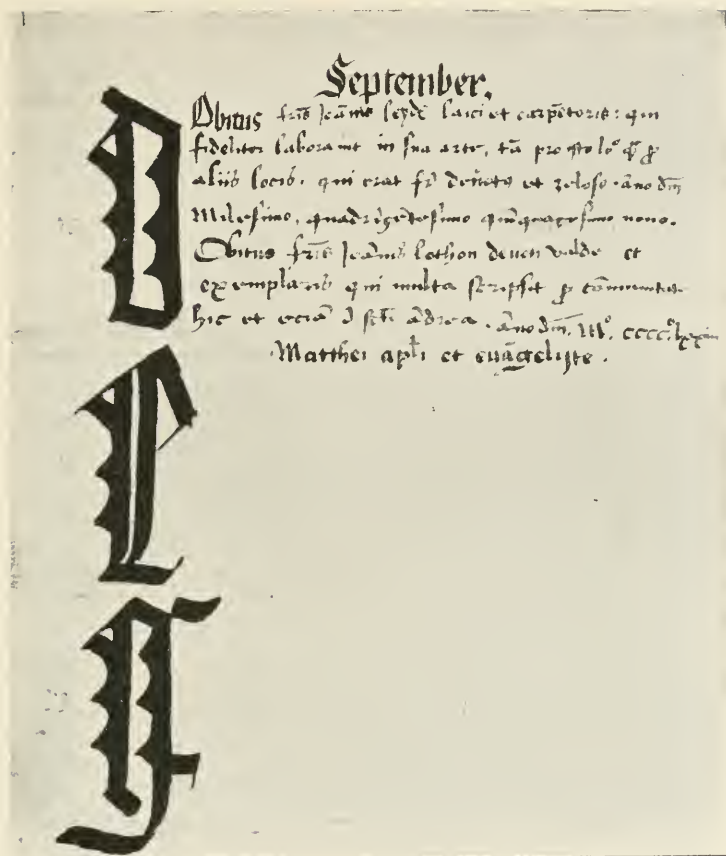 September.
Obitus fr̄is Joānis leydē laici et carpētoris: qui
fideliter laboravit in sua arte, tā pro isto loº q̄ ꝓ
aliis locis. qui erat fr̄ devotꝰ et zelosꝰ. āno dn̄i
Milesimo, quadrīgētesimo quīquagesimo nono.
Obitus fr̄is Joānis lothon devoti valde et
exemplaris qui multa scripsit ꝓ cōmunitate
hic et eciā ī sc̄ti ādree. āno dn̄i. Mº. ccccº.
Matthei apl̄i et evāgeliste.
D
L
G